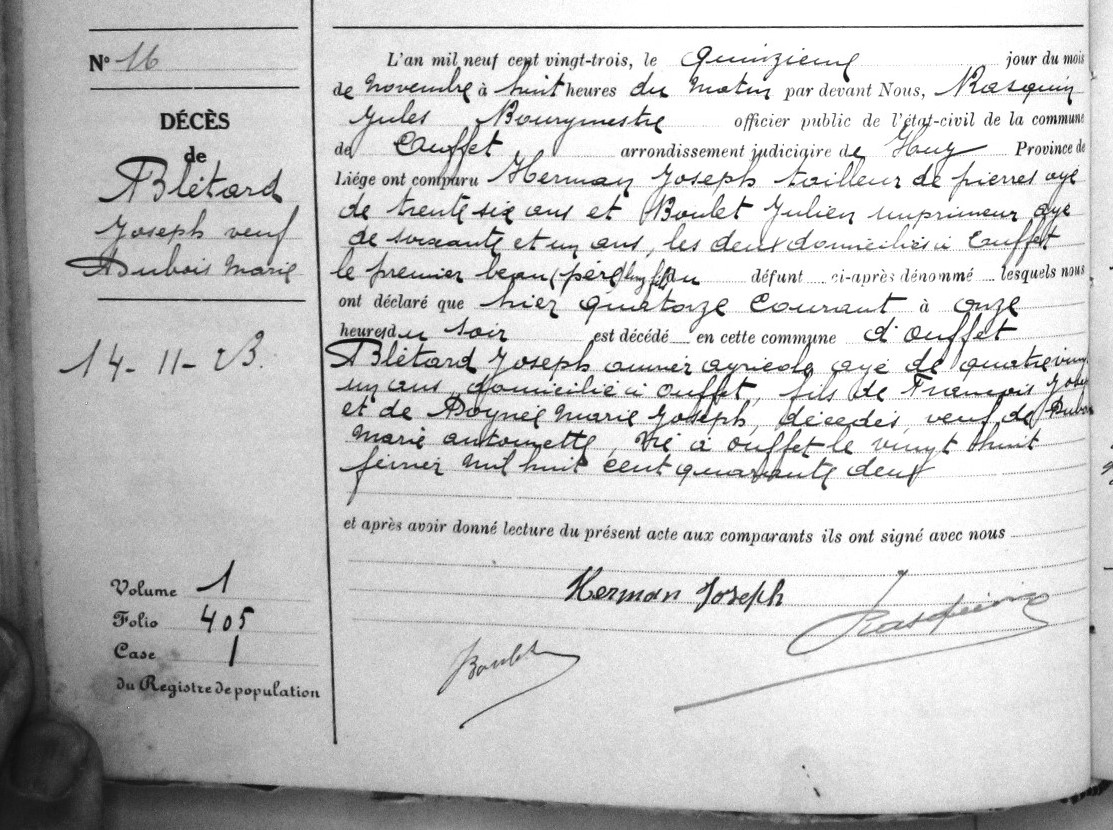 N° 16
DÉCÈS
de
Blétard
Joseph veuf
Dubois Marie
14-11-23.
Volume 1
Folio 405
Case 1
du Registre de population
L'an mil neuf cent vingt-trois, le quinzième jour du mois
de Novembre à huit heures du matin par devant Nous, Rasquin
Jules Bourgmestre officier public de l'état-civil de la commune
de Ouffet arrondissement judiciaire de Huy Province de
Liége ont comparu Herman Joseph tailleur de pierres agé
de trente six ans et Boulet Julien imprimeur agé
de soixante et un ans, les deux domiciliés à Ouffet
le premier beau du défunt ci-après dénommé lesquels nous
ont déclaré que hier quatorze courant à onze
heures du soir est décédé en cette commune d'Ouffet
Blétard Joseph ouvrier agricole agé de quatre vingt
un ans, domicilié à Ouffet, fils de François Joseph
et de Doynée Marie Joseph, décédés, veuf de Dubois
Marie antoinette, né à Ouffet le vingt huit
février mil huit cent quarante deux
et après avoir donné lecture du présent acte aux comparants ils ont signé avec nous
Herman Joseph
Rasquin
Boulet